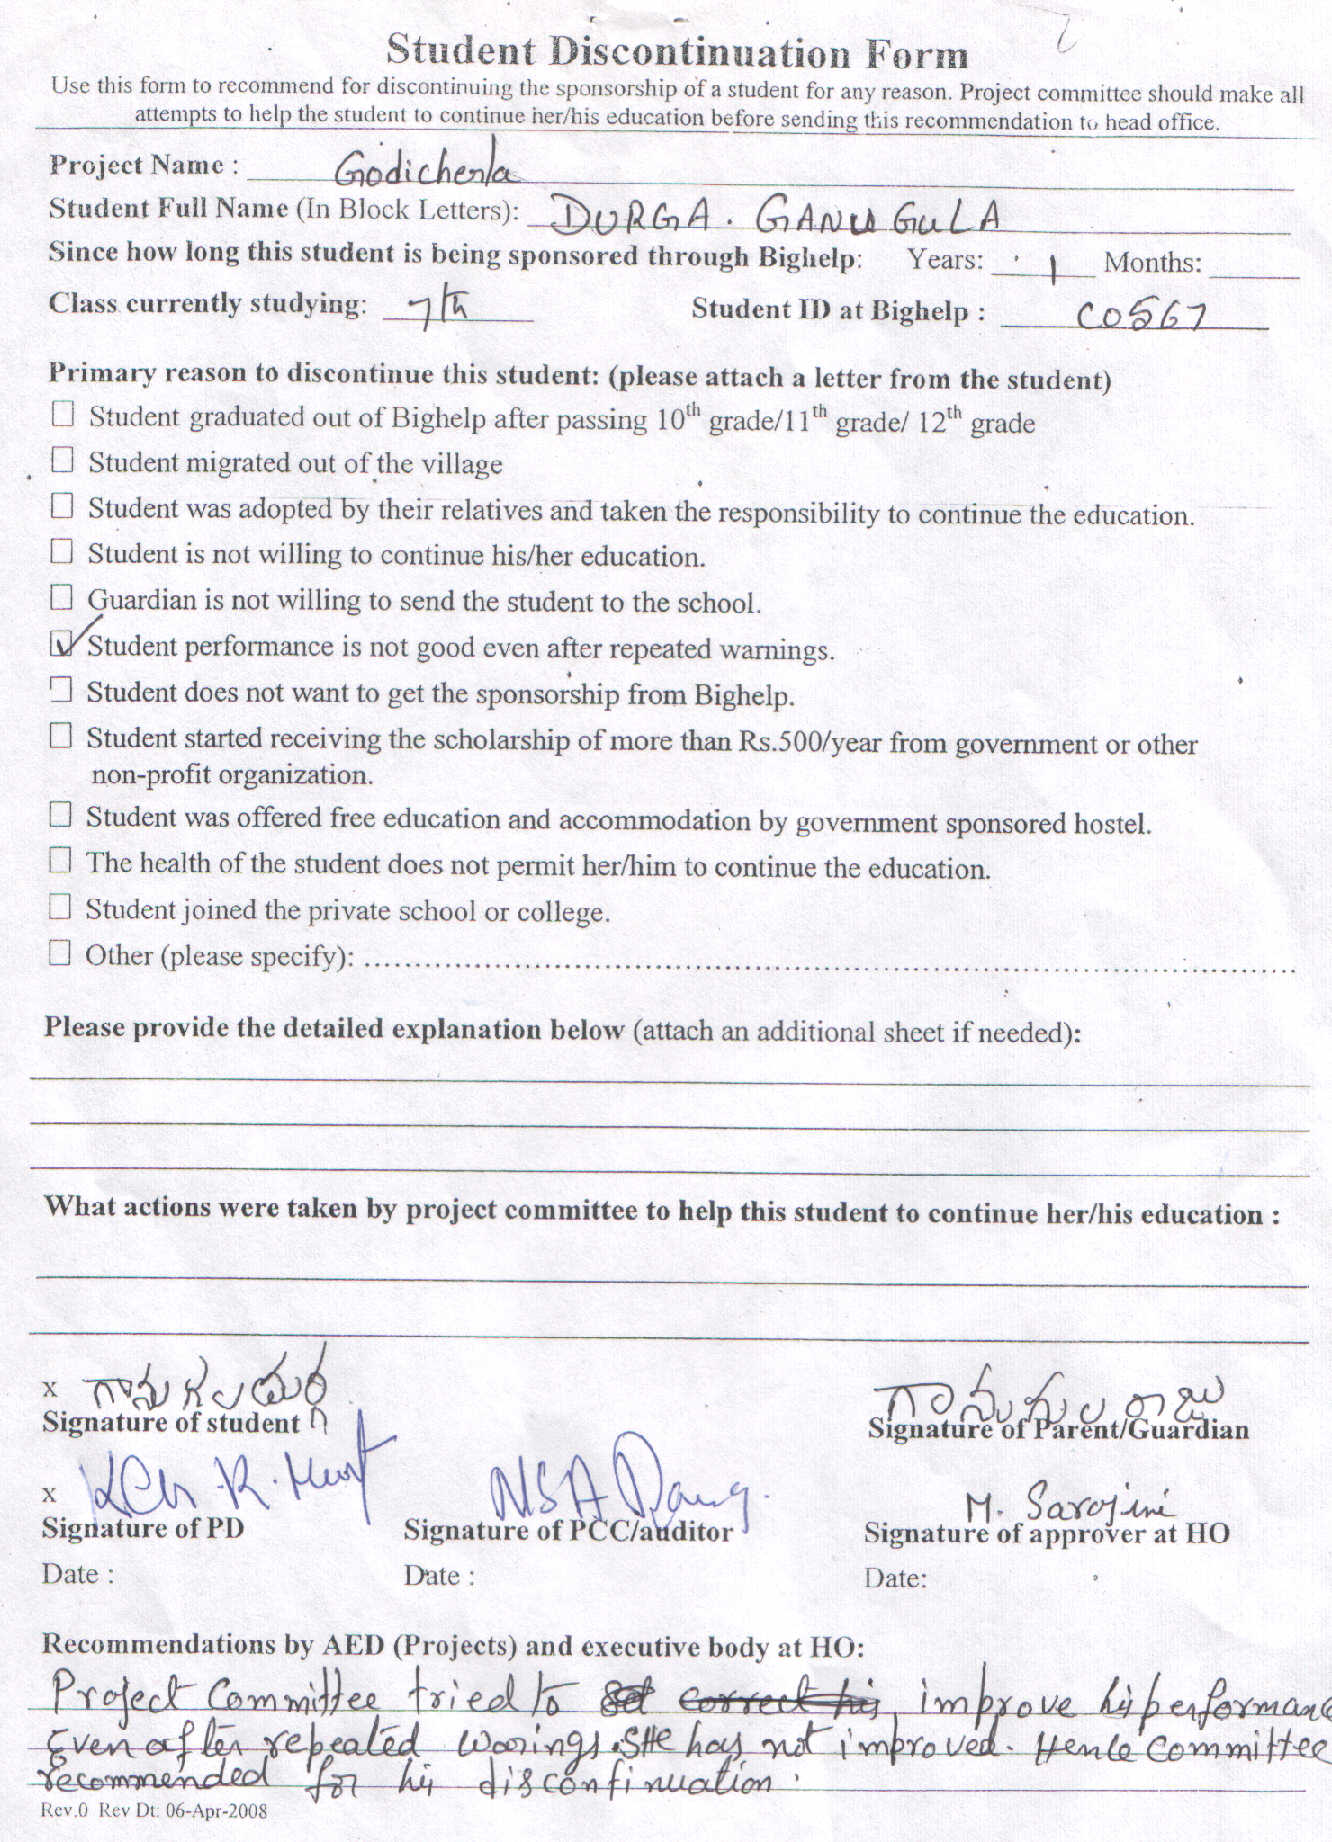 Student Discontinuation Form
Use this form to recommend for discontinuing the sponsorship of a student for any reason. Project committee should make all
attempts to help the student to continue her/his education before sending this recommendation to head office.
Project Name : Godicherla
Student Full Name (In Block Letters): DURGA. GANUGULA
Since how long this student is being sponsored through Bighelp: Years: 1 Months:
Class currently studying: 7th Student ID at Bighelp : C0567
Primary reason to discontinue this student: (please attach a letter from the student)
☐ Student graduated out of Bighelp after passing 10th grade/11th grade/ 12th grade
☐ Student migrated out of the village
☐ Student was adopted by their relatives and taken the responsibility to continue the education.
☐ Student is not willing to continue his/her education.
☐ Guardian is not willing to send the student to the school.
☑ Student performance is not good even after repeated warnings.
☐ Student does not want to get the sponsorship from Bighelp.
☐ Student started receiving the scholarship of more than Rs.500/year from government or other
non-profit organization.
☐ Student was offered free education and accommodation by government sponsored hostel.
☐ The health of the student does not permit her/him to continue the education.
☐ Student joined the private school or college.
☐ Other (please specify): ........................................................................
Please provide the detailed explanation below (attach an additional sheet if needed):
What actions were taken by project committee to help this student to continue her/his education :
x గానుగుల దుర్గ గానుగుల రాజు
Signature of student Signature of Parent/Guardian
x M. Sarojini
Signature of PD Signature of PCC/auditor Signature of approver at HO
Date : Date : Date:
Recommendations by AED (Projects) and executive body at HO:
Project Committee tried to improve his performance
Even after repeated warings. SHe has not improved. Hence Committee
recommended for his discontinuation.
Rev.0 Rev Dt: 06-Apr-2008